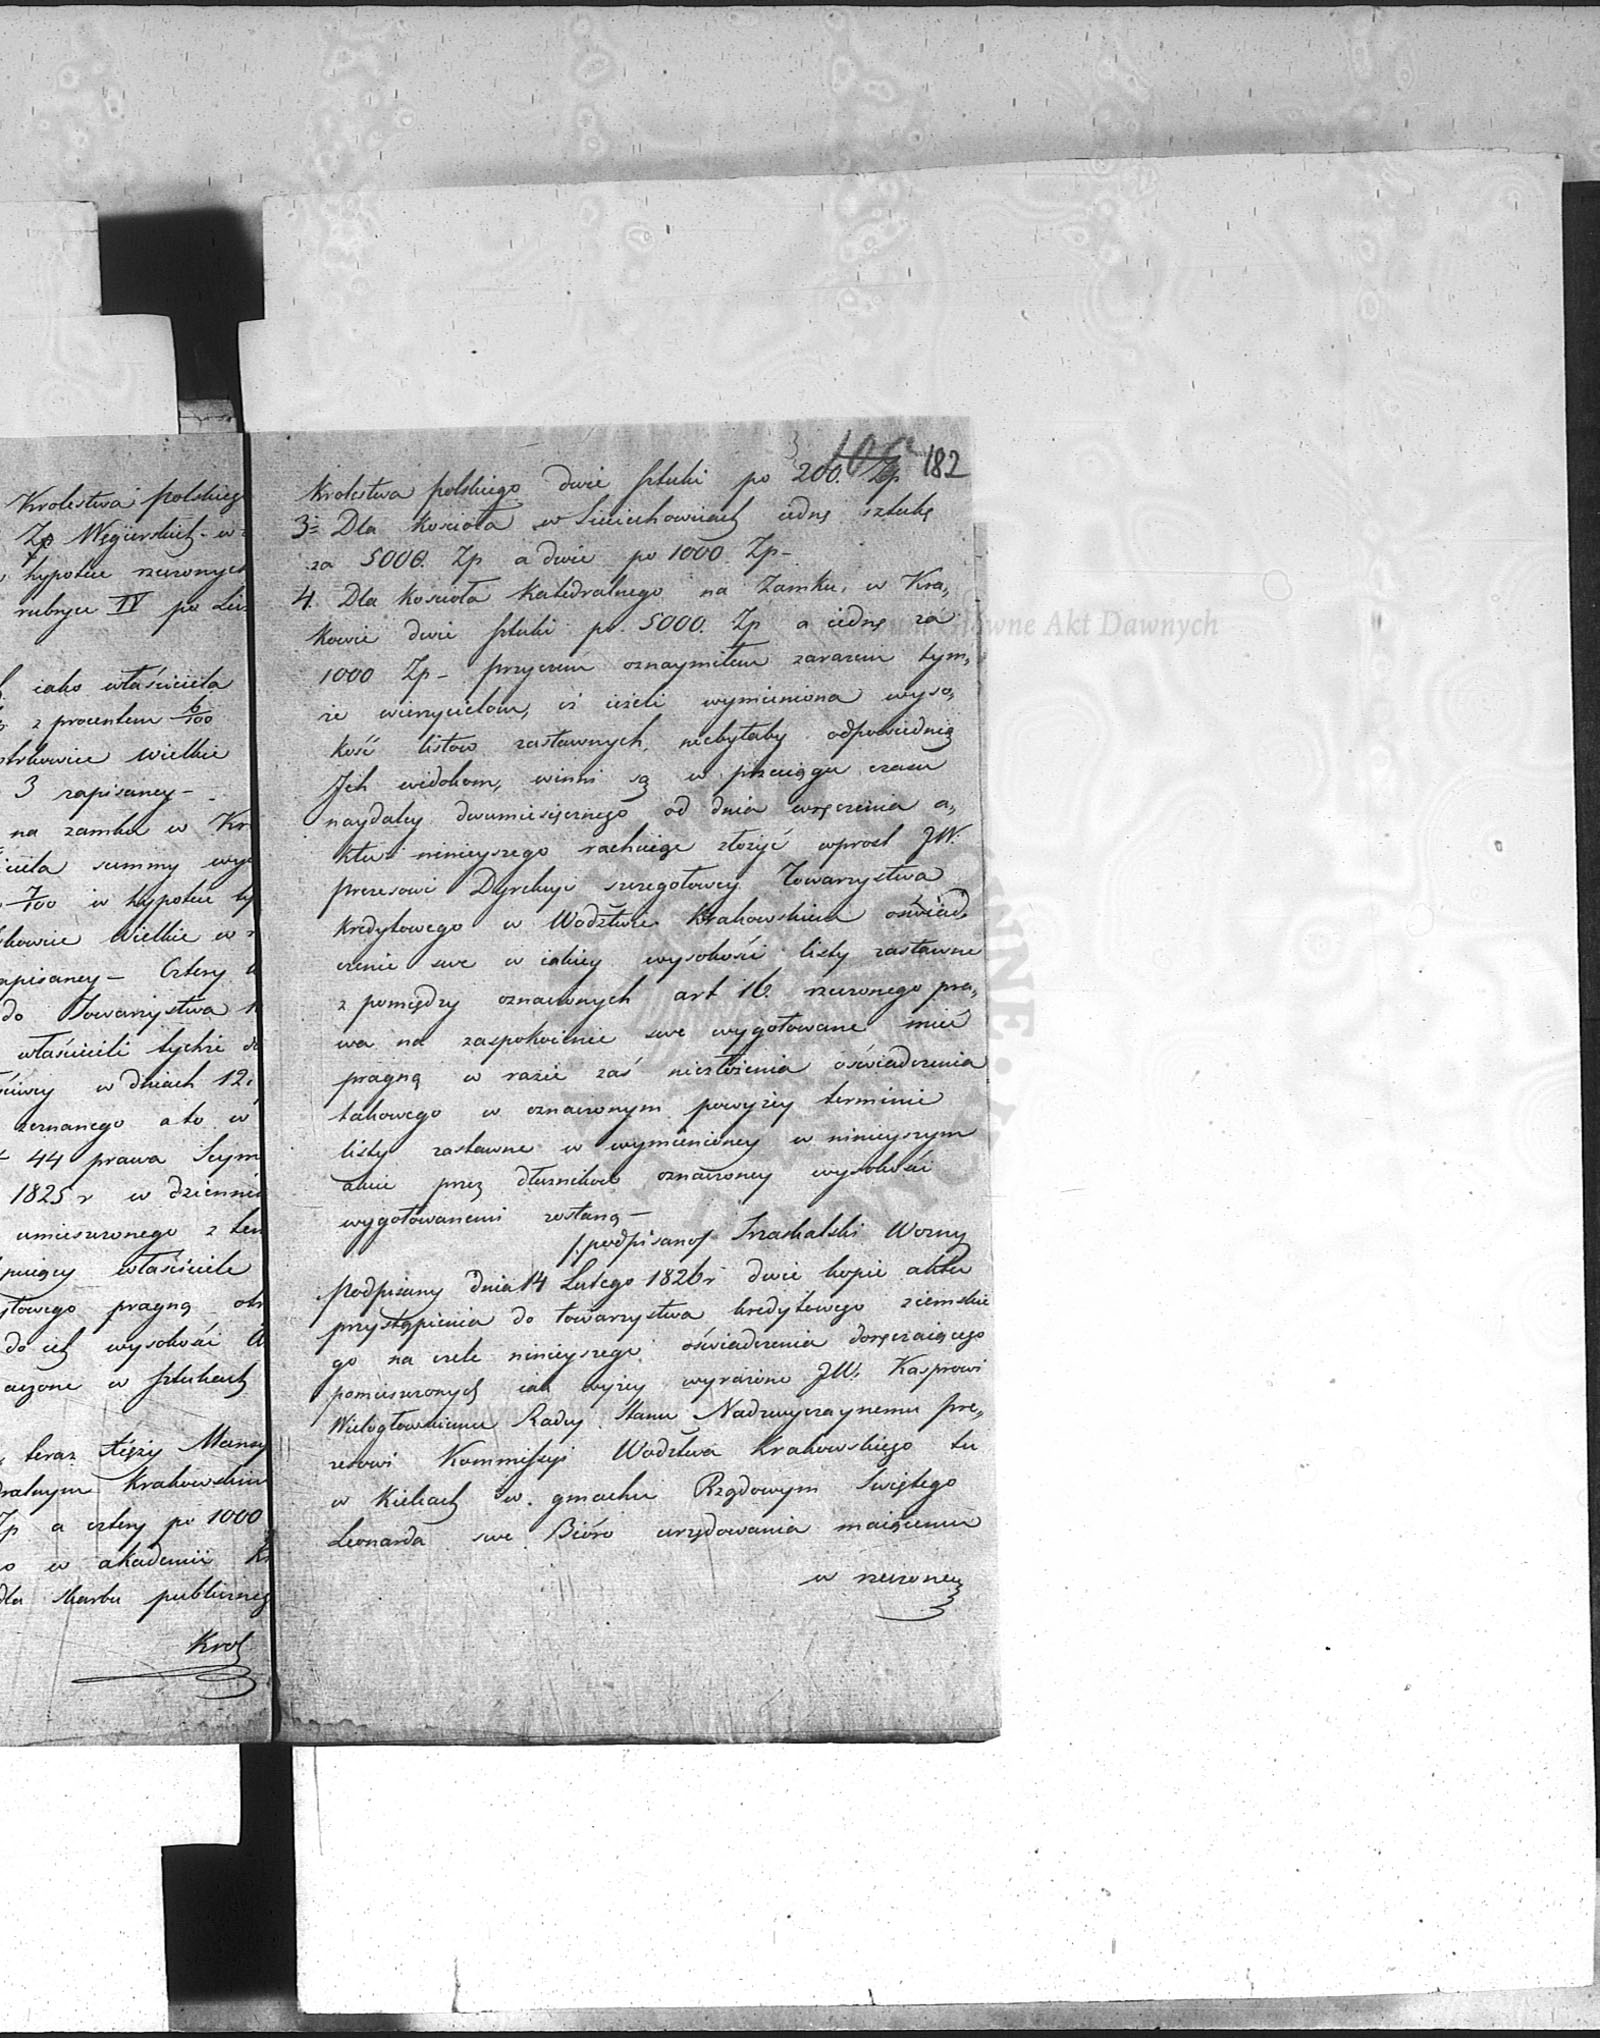 Krolestwa polskieg
Zp Węgierskich w
hypotece rzeczonych
rubryce IV po Lic
iako właściciela
z procentem 6/100
wielkie
3 zapisaney –
na zamku w Kr
ciela summy wy
7/100 w hypotece ty
kowice Wielkie w
apisaney – Cztery
do Towarzystwa
właścicieli tychże
w dniach 12
zeznanego a to w
44 prawa Seym
1825 r w dzienni
umieszczonego z
właściciele
towego pragną
do ich wysokości
w sztukach
teraz Xięży Mansy
dralnym Krakowskim
Zp a cztery po 1000
w akademii
dla skarbu publiczneg
Krol
182
Krolestwa polskiego dwie sztuki po 200. Zp
3: Dla Kościoła w Sieciechowicach iednę sztukę
za 5000. Zp a dwie po 1000 Zp –
4. Dla Kościoła Katedralnego na Zamku, w Kra,
kowie dwie sztuki po 5000. Zp a iednę za
1000 Zp – przyczem oznaymiłem zarazem tym,
że wierzycielom, iż ieżeli wymieniona wyso,
kość listow zastawnych, niebyłaby odpowiednią
Jch widokom, winni są w przeciągu czasu
naydaley dwumiesięcznego od dnia wręczenia a,
ktu ninieyszego rachuiąc złożyć wprost JW.
prezesowi Dyrekcyi szczegołowey Towarzystwa
Kredytowego w Wodztwie Krakowskiem oświad,
czenie swe w iakiey wysokości listy zastawne
z pomiędzy oznaczonych art 16. rzeczonego pra,
wa na zaspokoienie swe wygotowane mieć
pragną w razie zaś niezłożenia oświadczenia
takowego w oznaczonym powyżey terminie
listy zastawne w wymienioney w ninieyszym
akcie przez dłużnikow oznaczoney wysokości
wygotowanemi zostaną –
/podpisano/ Woźny
Podpisany dnia 14 Lutego 1826 r dwie kopie aktu
przystąpienia do towarzystwa kredytowego ziemskie
go na czele ninieyszego oświadczenia doręczaiącego
pomieszczonych iak wyżey wyrażone JW. Kasprowi
Wielogłowskiemu Radcy Stanu Nadzwyczaynemu pre,
zesowi Kommissyi Wodztwa Krakowskiego tu
w Kielcach w gmachu Rządowym Swiętego
Leonarda swe Bióro urzędowania maiącemu
w rzeczoney
Główne Akt Dawnych